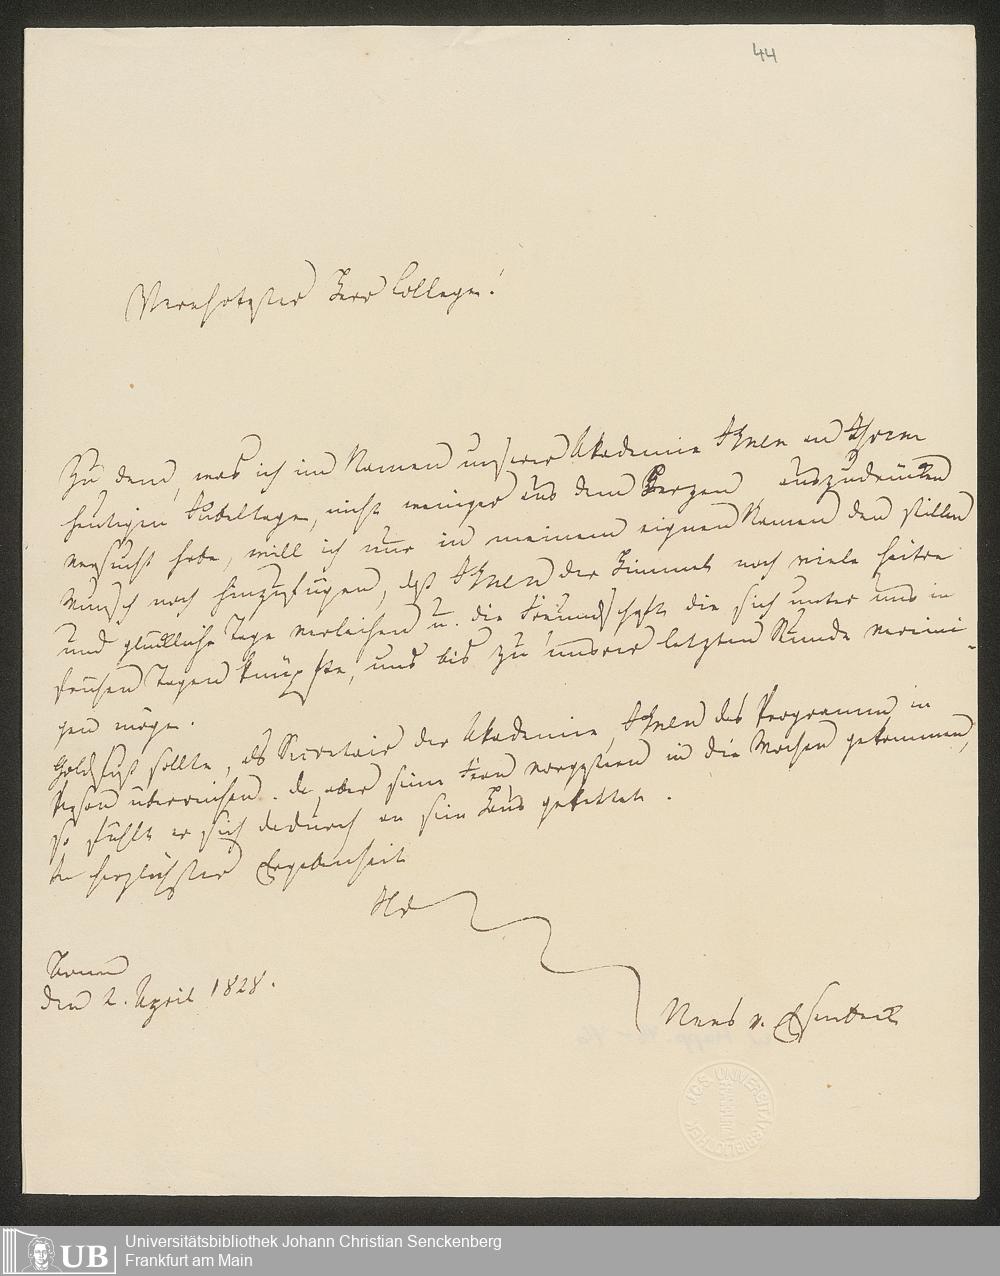 44
Verehrtester Herr College!
Zu dem, was ich im Namen unserer Akademie Ihnen an Ihrem
heutigen Jubeltage, nicht weniger aus dem Herzen, auszudrücken
versucht habe, will ich nur in meinem eignen Namen den stillen
Wunsch noch hinzufügen, daß Ihnen der Himmel noch viele heitre
und glückliche Tage verleihen u. die Freundschaft die sich unter uns in
frühen Tagen knüpfte, uns bis zu unsrer letzten Stunde vereini-
gen möge.
Goldfuß sollte, als Secretair der Akademie, Ihnen das Programm in
Person überreichen. Da aber seine Frau vorgestern in die Wochen gekommen,
so fühlt er sich dadurch an sein Haus gekettet.
In herzlichster Ergebenheit
Ihr
Bonn
den 2. April 1828.
Nees v. Esenbeck
J.C.S. UNIVERSITÄTSBIBLIOTHEK
UB
Universitätsbibliothek Johann Christian Senckenberg
Frankfurt am Main